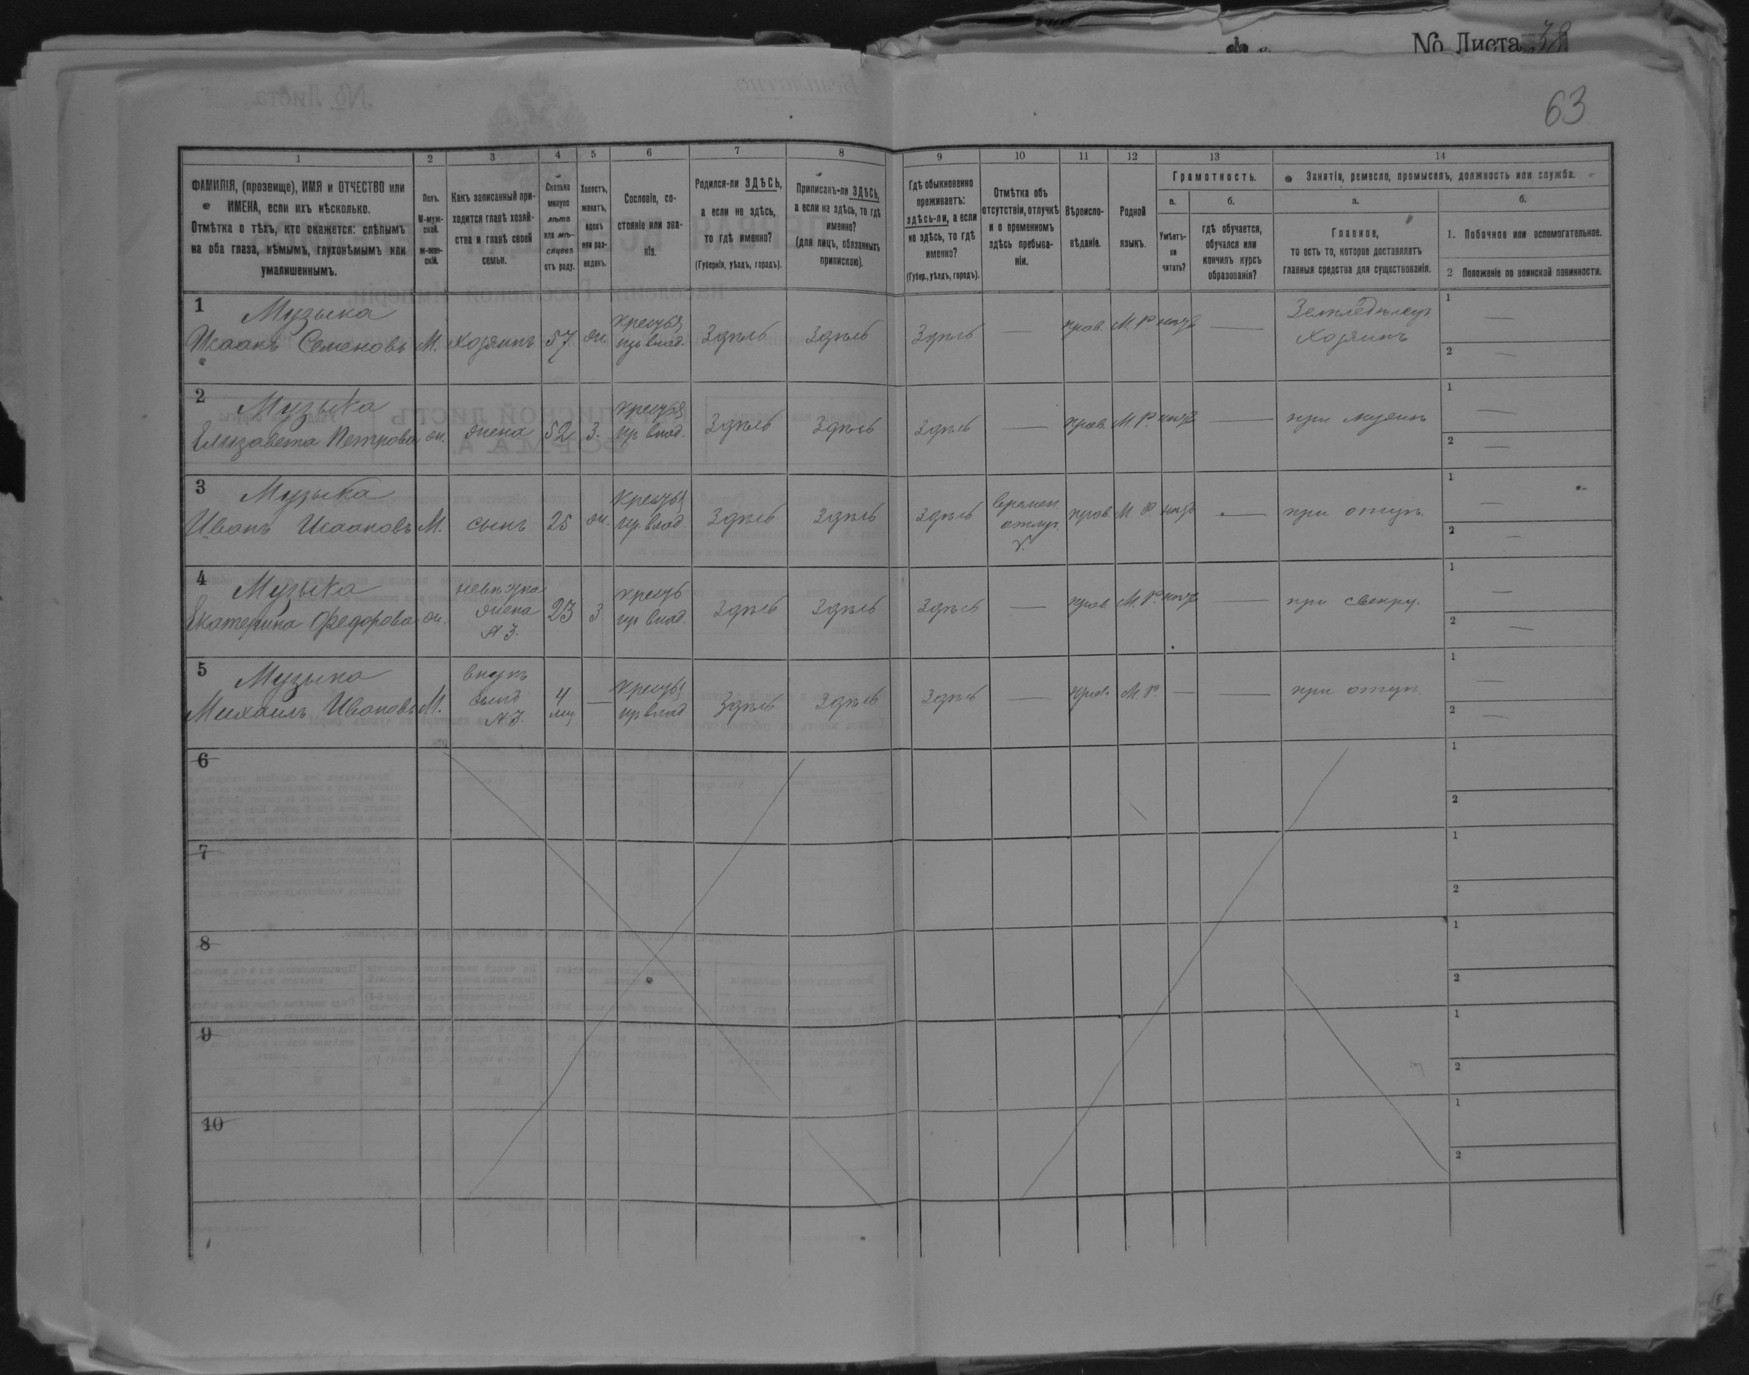 No Листа 38
63
1 2 3 4 5 6 7 8 9 10 11 12 13 14
ФАМИЛІЯ, (прозвище), ИМЯ и ОТЧЕСТВО или
ИМЕНА, если ихъ нѣсколько.
Отмѣтка о тѣхъ, кто окажется: слѣпымъ
на оба глаза, нѣмымъ, глухонѣмымъ или
умалишеннымъ.
Полъ.
М-муж-
ской.
ж-жен-
скій.
Какъ записанный при-
ходится главѣ хозяй-
ства и главѣ своей
семьи.
Сколько
минуло
лѣтъ
или мѣ-
сяцевъ
отъ роду.
Холостъ,
женатъ,
вдовъ
или раз-
веденъ.
Сословіе, со-
стояніе или зва-
ніе.
Родился-ли ЗДѢСЬ,
а если не здѣсь,
то гдѣ именно?
(Губернія, уѣздъ, городъ).
Приписанъ-ли ЗДѢСЬ,
а если не здѣсь, то гдѣ
именно?
(для лицъ, обязанныхъ
припискою).
Гдѣ обыкновенно
проживаетъ:
здѣсь-ли, а если
не здѣсь, то гдѣ
именно?
(Губер., уѣздъ, городъ).
Отмѣтка объ
отсутствіи, отлучкѣ
и о временномъ
здѣсь пребыва-
ніи.
Вѣроиспо-
вѣданіе.
Родной
языкъ.
Грамотность.
а.
Умѣетъ-
ли
читать?
б.
гдѣ обучается,
обучался или
кончилъ курсъ
образованія?
Занятія, ремесло, промыселъ, должность или служба.
а.
Главное,
то есть то, которое доставляетъ
главныя средства для существованія.
б.
1. Побочное или вспомогательное.
2 Положеніе по воинской повинности.
1 Музыка
Исаакъ Семеновъ М. хозяинъ 57 ж. Здѣсь Здѣсь Здѣсь — прав. М. Р. — Земледѣлецъ
хозяинъ
1
2 —
2 Музыка
Елизавета Петрова ж. жена 52 з. Здѣсь Здѣсь Здѣсь — прав. М. Р. — при мужѣ
1 —
2 —
3 Музыка
Иванъ Исааковъ М. сынъ 25 ж. Здѣсь Здѣсь Здѣсь прав. М. Р. — при отцѣ
1 —
2 —
4 Музыка
Екатерина Федорова ж. невѣстка
жена
N 3. 23 з Здѣсь Здѣсь Здѣсь — прав. М. Р. — при свекру.
1 —
2 —
5 Музыка
Михаилъ Ивановъ М. внукъ
сынъ
N 3. 4 — Здѣсь Здѣсь Здѣсь — прав. М. Р. — — при отцѣ
1 —
2 —
6
1
2
7
1
2
8
1
2
9
1
2
10
1
2